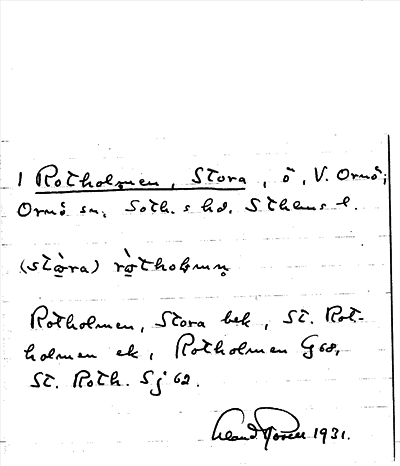 1 Rotholmen, Stora, ö, V. Ornö;
Ornö sn, Soth.s hd, Sthems l.
(stòra) ròtholmṇ
Rotholmen, Stora bek, St. Rot-
holmen ek, Rotholmen G68,
St. Roth. Sj 62.
1931.